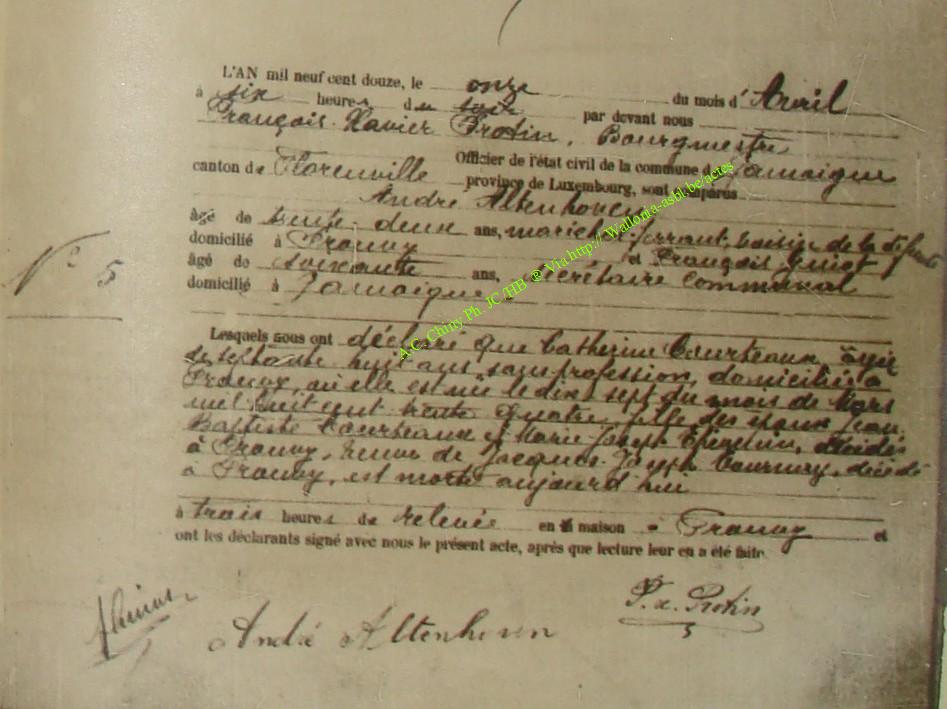 L'AN mil neuf cent douze, le onze du mois d'Avril
à six heures du soir par devant nous
François Xavier Protin, Bourgmestre
Officier de l'état civil de la commune de Jamoigne
canton de Florenville province de Luxembourg, sont comparus
André Altenhoven
âgé de trente-deux ans, voisin de la défunte
domicilié à Prouvy et François Guiot
âgé de soixante ans, secrétaire communal
domicilié à Jamoigne
N° 5
Lesquels nous ont déclaré que Catherine Courteaux, âgée
de septante huit ans, sans profession, domiciliée à
Prouvy, où elle est née le dix sept du mois de Mars
mil huit cent trente quatre, fille des époux Jean
Baptiste Courteaux et Marie Joseph décédés
à Prouvy, veuve de Jacques Joseph décédé
à Prouvy, est morte aujourd'hui
à trois heures de relevée en maison à Prouvy et
ont les déclarants signé avec nous le présent acte, après que lecture leur en a été faite.
F. x. Protin
André Altenhoven
A.C. Chiny Ph. JC /HB ® Via http:// Wallonia-asbl.be/actes